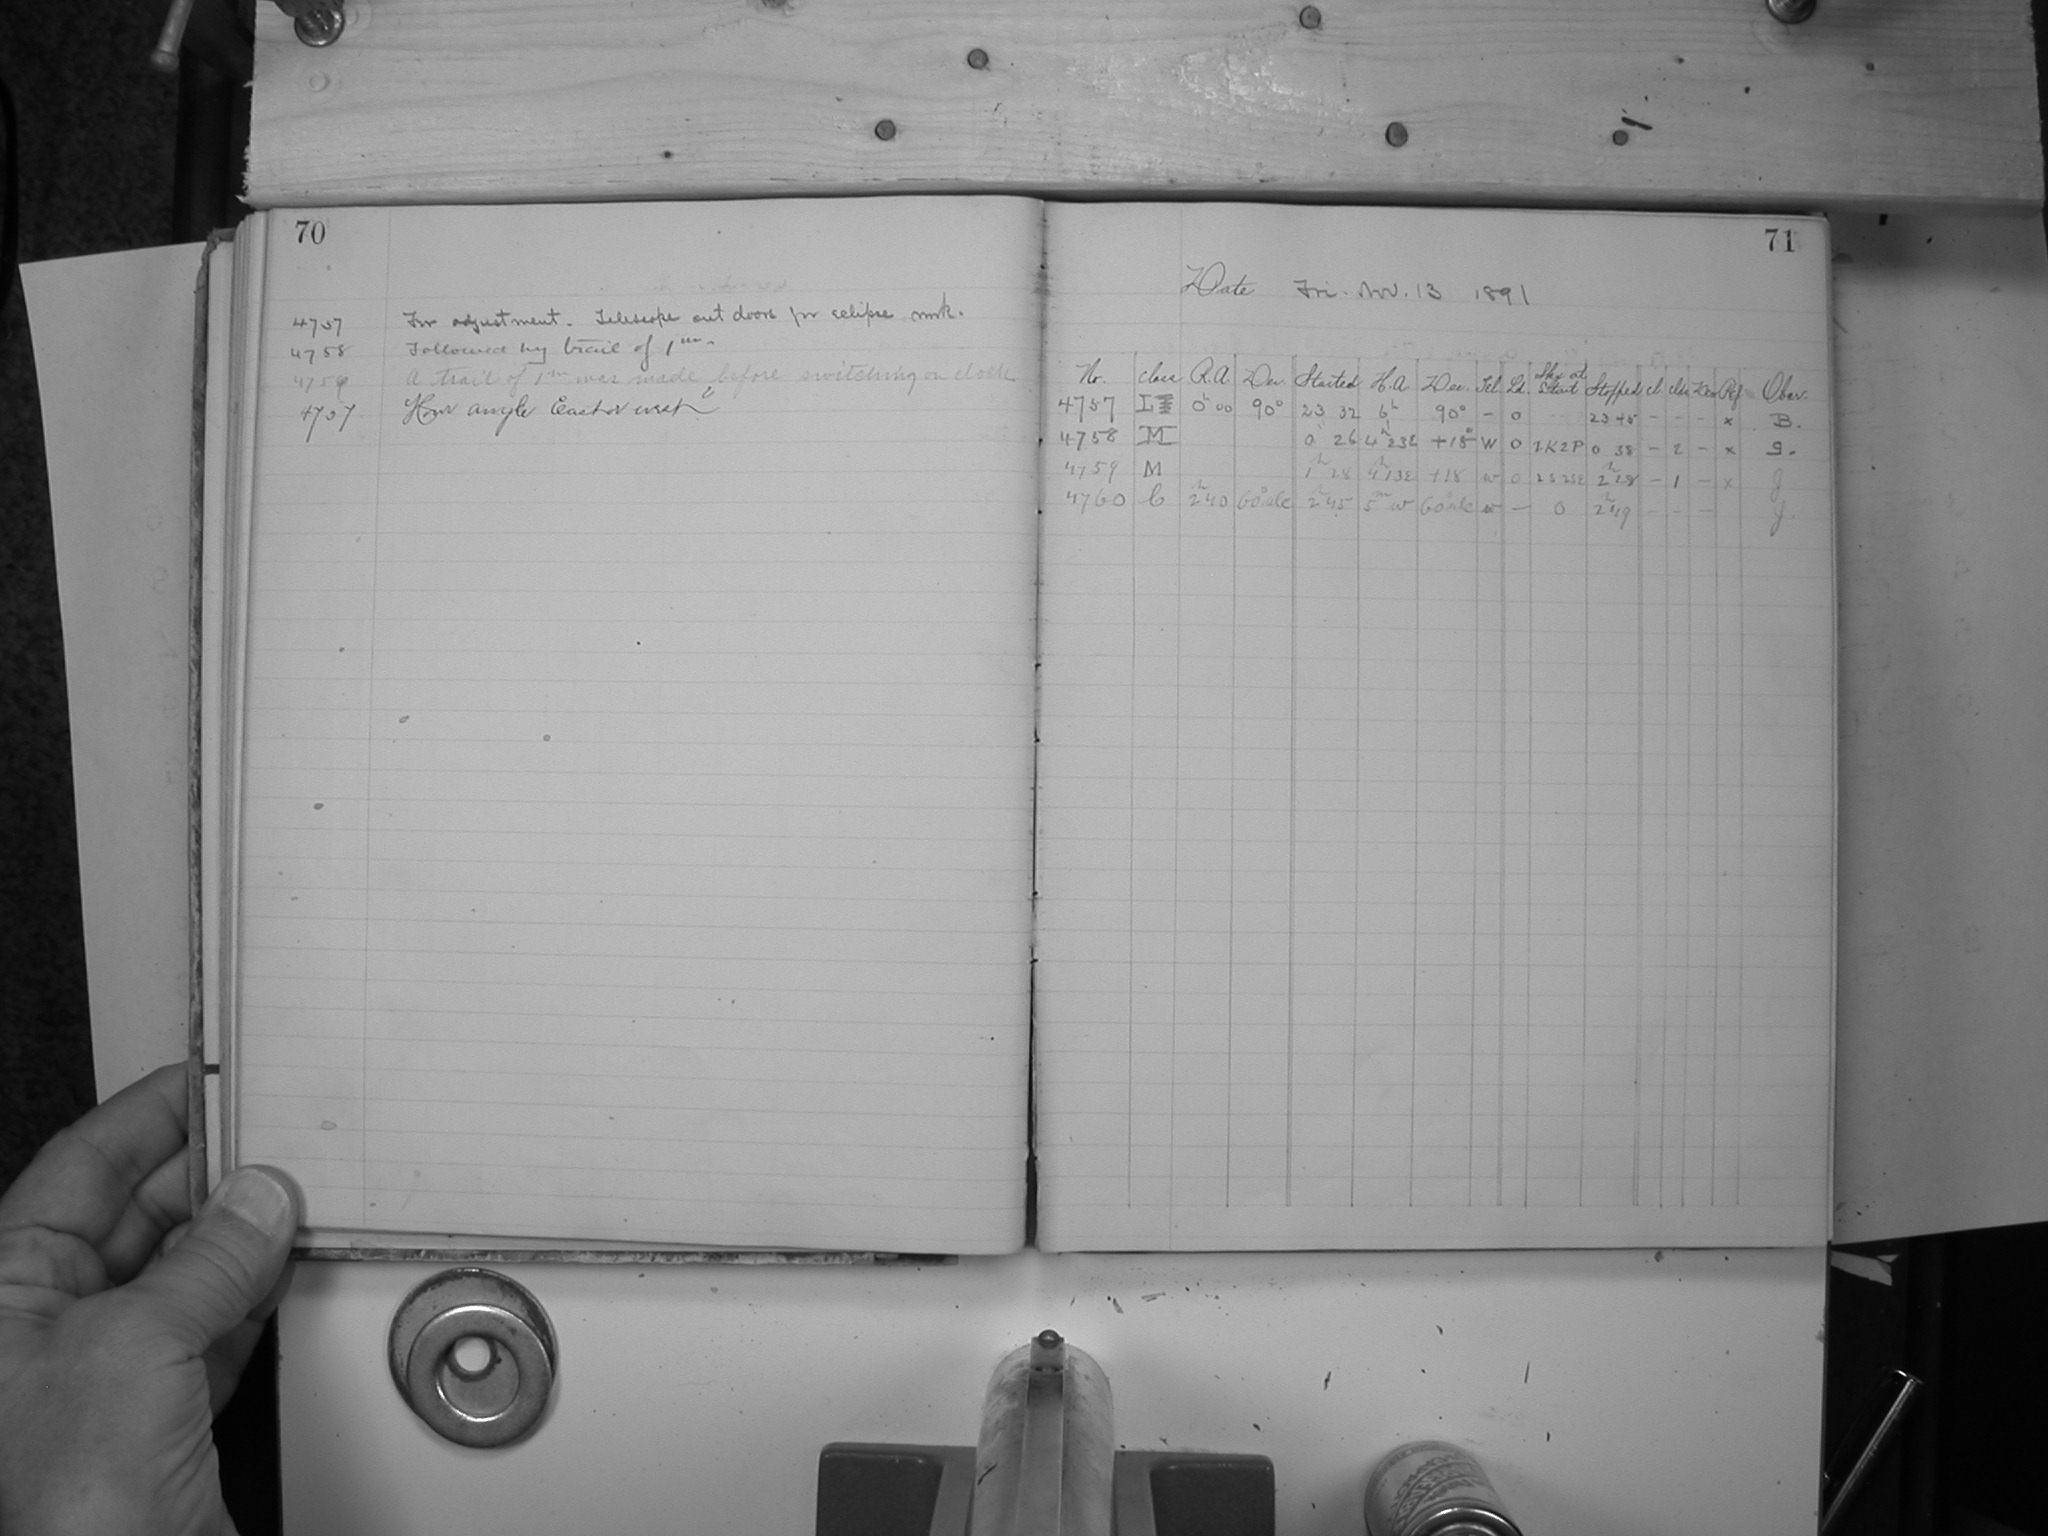 70
4757 For adjustment. Telescope out doors for eclipse work.
4758 Followed by trail of 1m.
4759 A trail of 1m was made before switching on clock
4757 Hour angle East or west?
71
Date Fri. Nov. 13 1891
No. Class R.A. Dec. Started H.A. Dec. Tel Ld. Sky at Start Stopped cl. Clds Dew Ref Obsr.
4757 L 0h 00 90° 23 32 6h 90° - 0 23 45 - - - x B.
4758 M 0 26 4h 23E +18° W 0 2K2P 0 38 - 2 - x G.
4759 M 1h 28 4h 13E +18 w 0 2S2SE 2h 28 - 1 - x J
4760 C 2h 40 60° 2h 45 5m w 60° w - 0 2h 49 - - - J.